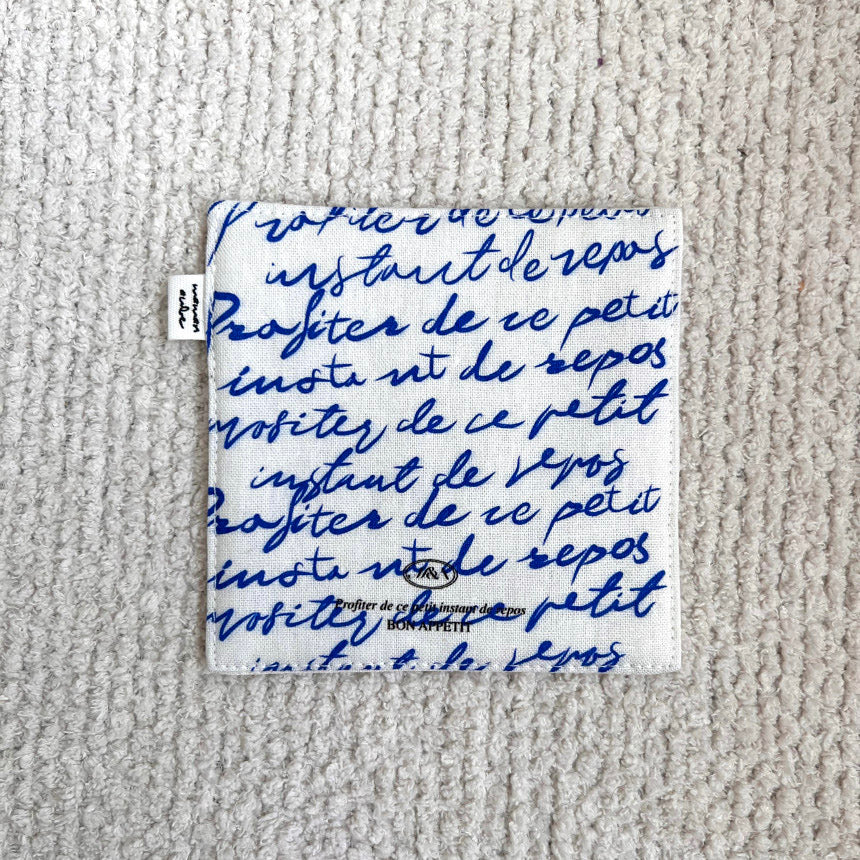 Profiter de ce petit
instant de repos
Profiter de ce petit
instant de repos
profiter de ce petit
instant de repos
Profiter de ce petit
instant de repos
profiter de ce petit
Profiter de ce petit instant de repos
BON APPETIT
instant de repos